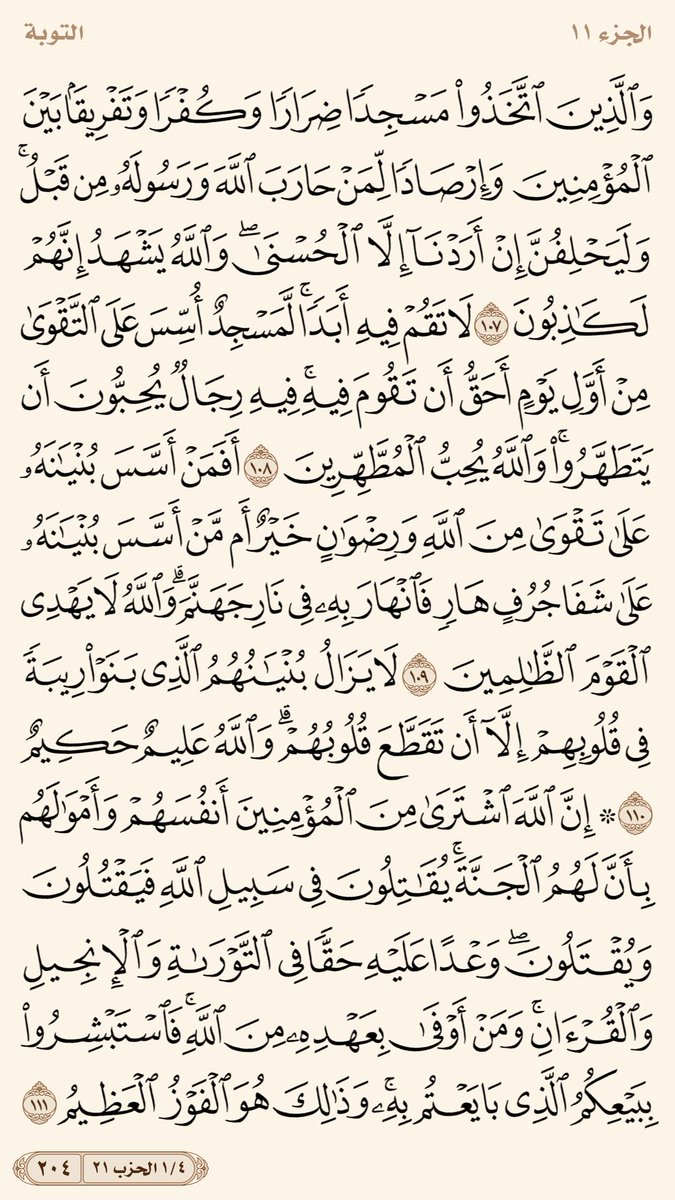 الجزء ١١ التوبة
وَٱلَّذِينَ ٱتَّخَذُوا۟ مَسْجِدًا ضِرَارًا وَكُفْرًا وَتَفْرِيقًۢا بَيْنَ
ٱلْمُؤْمِنِينَ وَإِرْصَادًا لِّمَنْ حَارَبَ ٱللَّهَ وَرَسُولَهُۥ مِن قَبْلُ ۚ
وَلَيَحْلِفُنَّ إِنْ أَرَدْنَآ إِلَّا ٱلْحُسْنَىٰ ۖ وَٱللَّهُ يَشْهَدُ إِنَّهُمْ
لَكَـٰذِبُونَ ١٠٧ لَا تَقُمْ فِيهِ أَبَدًا ۚ لَّمَسْجِدٌ أُسِّسَ عَلَى ٱلتَّقْوَىٰ
مِنْ أَوَّلِ يَوْمٍ أَحَقُّ أَن تَقُومَ فِيهِ ۚ فِيهِ رِجَالٌ يُحِبُّونَ أَن
يَتَطَهَّرُوا۟ ۚ وَٱللَّهُ يُحِبُّ ٱلْمُطَّهِّرِينَ ١٠٨ أَفَمَنْ أَسَّسَ بُنْيَـٰنَهُۥ
عَلَىٰ تَقْوَىٰ مِنَ ٱللَّهِ وَرِضْوَٰنٍ خَيْرٌ أَم مَّنْ أَسَّسَ بُنْيَـٰنَهُۥ
عَلَىٰ شَفَا جُرُفٍ هَارٍ فَٱنْهَارَ بِهِۦ فِى نَارِ جَهَنَّمَ ۗ وَٱللَّهُ لَا يَهْدِى
ٱلْقَوْمَ ٱلظَّـٰلِمِينَ ١٠٩ لَا يَزَالُ بُنْيَـٰنُهُمُ ٱلَّذِى بَنَوْا۟ رِيبَةً
فِى قُلُوبِهِمْ إِلَّآ أَن تَقَطَّعَ قُلُوبُهُمْ ۗ وَٱللَّهُ عَلِيمٌ حَكِيمٌ
١١٠ * إِنَّ ٱللَّهَ ٱشْتَرَىٰ مِنَ ٱلْمُؤْمِنِينَ أَنفُسَهُمْ وَأَمْوَٰلَهُم
بِأَنَّ لَهُمُ ٱلْجَنَّةَ ۚ يُقَـٰتِلُونَ فِى سَبِيلِ ٱللَّهِ فَيَقْتُلُونَ
وَيُقْتَلُونَ ۖ وَعْدًا عَلَيْهِ حَقًّا فِى ٱلتَّوْرَىٰةِ وَٱلْإِنجِيلِ
وَٱلْقُرْءَانِ ۚ وَمَنْ أَوْفَىٰ بِعَهْدِهِۦ مِنَ ٱللَّهِ ۚ فَٱسْتَبْشِرُوا۟
بِبَيْعِكُمُ ٱلَّذِى بَايَعْتُم بِهِۦ ۚ وَذَٰلِكَ هُوَ ٱلْفَوْزُ ٱلْعَظِيمُ ١١١
١/٤ الحزب ٢١ ٢٠٤